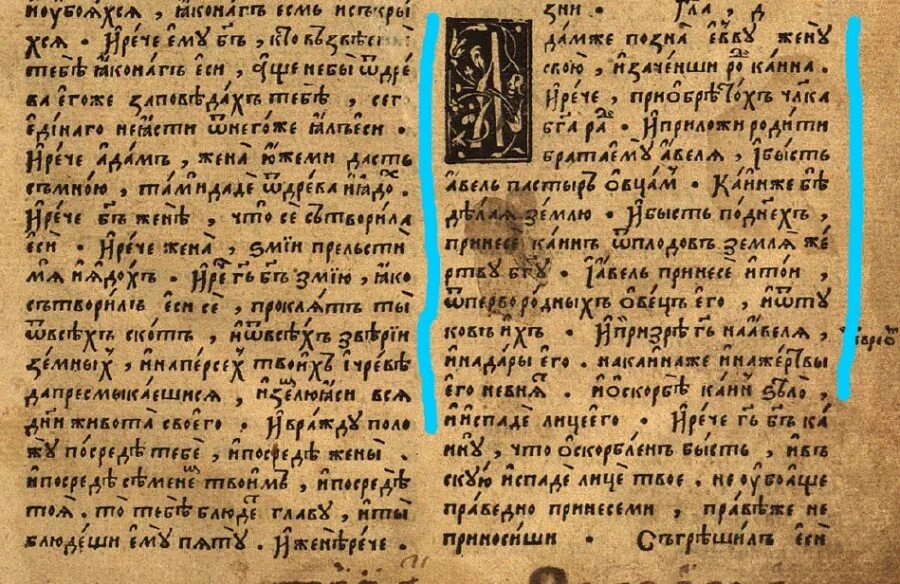 иоубоѧ́хсѧ , ꙗ҆́конагъ есмь исъкры́
хсѧ . И҆рече е҆му бг҃ъ , кто възвѣсти
тебѣ ꙗ҆́конагъ е҆си , а҆́ще небы ѿдре́
ва е҆го́же заповѣ́дахъ тебѣ , сег
е҆ди́наго не ꙗ҆́сти ѿнего́же ꙗ҆́лъ е҆си .
И҆рече а҆да́мъ , жена̀ ю҆́жеми дасть
съмно́ю , та́мидаде ѿдре́ва и҆ꙗ҆до́ .
И҆рече бг҃ъ женѣ̀ , что̀ сѐ сътвори́ла
е҆сѝ . И҆рече жена̀ , ѕмі́и прельсти́
мѧ и҆ꙗ҆до́хъ . И҆рѐ гь҃ бг҃ъ ѕмі́ю , ꙗ҆́ко
сътвори́лъ е҆сѝ сѐ , про́клѧтъ ты̀
ѿвсѣ́хъ скотъ , и҆ѿвсѣ́хъ ѕвѣрі́и
ѕемны́х , и҆наперсех твои́хъ и҆чре́вѣ
дапресмыка́ешисѧ , и҆зе́млю ꙗ҆си всѧ
дн҃и живота̀ своего̀ . И҆вра́жду поло
жу̀ посредѣ̀ тебѐ , и҆посредѣ̀ жены̀ .
и҆посредѣ̀ сѣ́мене твои́мъ , и҆посредѣ̀
тоѧ̀ . то̀ тебѣ̀ блюдѐ главу̀ , и҆ты̀
блюде́ши е҆му̀ пѧ́ту . И҆женѣ̀рече .
зни . Гла , д҃
А
да́мже позна̀ е҆́вву жену̀
свою̀ , и҆заче́нши ро каи́на .
И҆рече , прио҆брѣто́хъ чл҃ка
бг҃а ра . И҆приложѝ роди́ти
бра́тае҆му̀ а҆́велѧ , і҆бы́сть
а҆́вель па́стырь о҆вца́м . Ка́инже бѣ̀
дѣ́лаѧ зе́млю . И҆бы́сть поднехъ ,
принесѐ ка́инъ ѿплодо́въ ѕемлѧ̀ же́
ртву бг҃у . І҆а҆́вель принесѐ и҆то́и ,
ѿперворо́дныхъ о҆ве́цъ е҆го̀ , и҆ѿту́
ковъ и҆́хъ . И҆призрѣ̀ гь҃ наа҆́велѧ ,
и҆нада́ры е҆го̀ . нака́инаже и҆наже́ртвы
е҆го̀ невнѧ̀ . и҆о҆скорбѣ̀ ка́ин ѕѣло̀ ,
и҆испадѐ лицѐего̀ . И҆рече гь҃ бг҃ъ ка́
ину , что̀ о҆ско́рбленъ бы́сть , и҆въ
ску́ю и҆спадѐ лицѐ твоѐ . не оу҆боа҆́ще
пра́ведно принесе́ми , пра́вѣже не
прино́сиши . Съгрѣши́лъ е҆сѝ